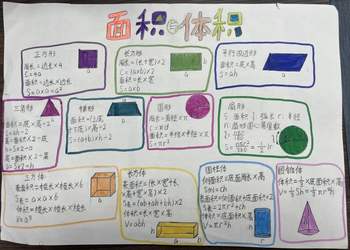 面积与体积
正方形
周长=边长×4
C=4a
面积=边长×边长
S=a×a=a²
长方形
周长=(长+宽)×2
C=(a+b)×2
面积=长×宽
S=ab
平行四边形
面积=底×高
S=ah
三角形
面积=底×高÷2
S=ah÷2
高=面积×2÷底
底=面积×2÷高
梯形
面积=(上底
+下底)×高÷2
S=(a+b)×h÷2
圆形
直径=半径×2
周长=直径×π
面积=半径×半径×π
扇形
正方体
表面积=棱长×棱长×6
体积=棱长×棱长×棱长
V=a³
长方体
表面积=(长×宽+长
×高+宽×高)×2
S=(ab+ah+bh)×2
体积=长×宽×高
V=abh
圆柱体
侧面积=底面周长×高
S侧=ch
体积=底面积×高
圆锥体
体积=⅓×底面积×高
V=⅓Sh=⅓πr²h